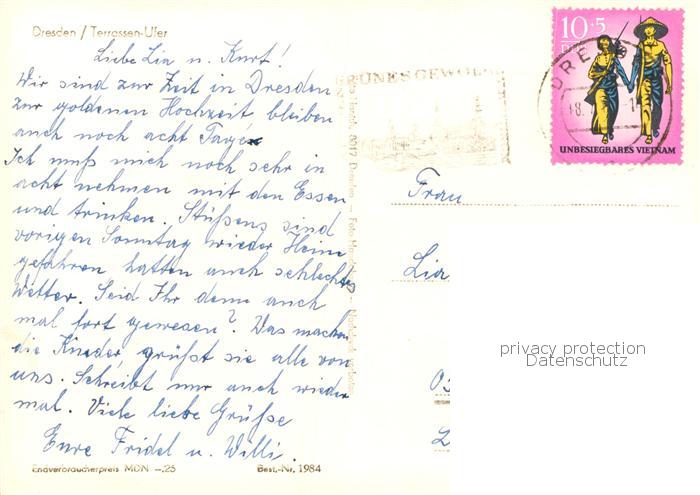 Dresden / Terrassen-Ufer
Liebe Lia u. Kurt!
Wir sind zur Zeit in Dresden
zur goldenen Hochzeit bleiben
auch noch acht Tage
Ich muß mich noch sehr in
acht nehmen mit den Essen
und trinken. Stüßens sind
vorigen Sonntag wieder Heim
gefahren hatten auch schlechtes
Wetter. Seid Ihr denn auch
mal fort gewesen? Was machen
die Kinder, grüßt sie alle von
uns. Schreibt nur auch wieder
mal. Viele liebe Grüße
Eure Fridel u. Willi.
Endverbraucherpreis MDN -.25
Best.-Nr. 1984
8017 Dresden
GRÜNES GEWÖLBE
DRESD
18.
10+5
DDR
UNBESIEGBARES VIETNAM
Frau
Lia
privacy protection
Datenschutz